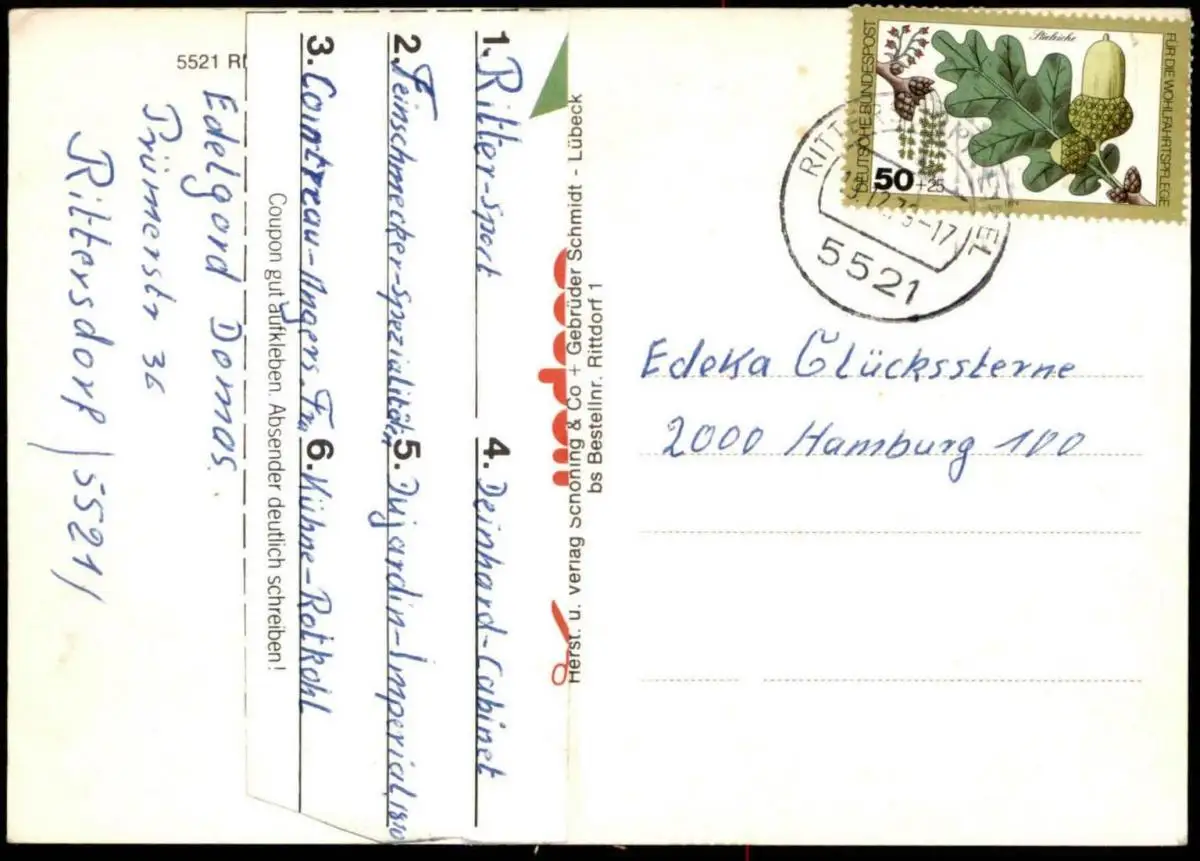 5521
Edelgard Domas
Prümerstr 36
Rittersdorf / 5521 /
1. Ritter-sport
2. Feinschmecker-spezialitäten
3. Cointreau-Angers.
4. Deinhard-Cabinet
5. Dujardin-Imperial 1810
6. Kühne-Rotkohl
Coupon gut aufkleben. Absender deutlich schreiben!
Herst. u. Verlag Schöning & Co + Gebrüder Schmidt - Lübeck
bs Bestellnr. Rittdorf 1
DEUTSCHE BUNDESPOST
Stieleiche
FÜR DIE WOHLFAHRTSPFLEGE
50 +25
5521
Edeka Glückssterne
2000 Hamburg 100